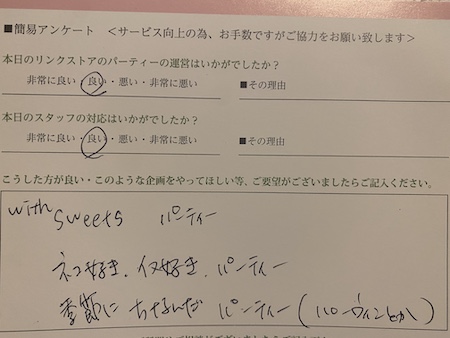 ■簡易アンケート　＜サービス向上の為、お手数ですがご協力をお願い致します＞
本日のリンクストアのパーティーの運営はいかがでしたか？
非常に良い・良い・悪い・非常に悪い　■その理由
本日のスタッフの対応はいかがでしたか？
非常に良い・良い・悪い・非常に悪い　■その理由
こうした方が良い・このような企画をやってほしい等、ご要望がございましたらご記入ください。
with sweets パーティー
ネコ好き、イヌ好き、パーティー
季節に ちなんだ パーティー（ハロウィンとか）